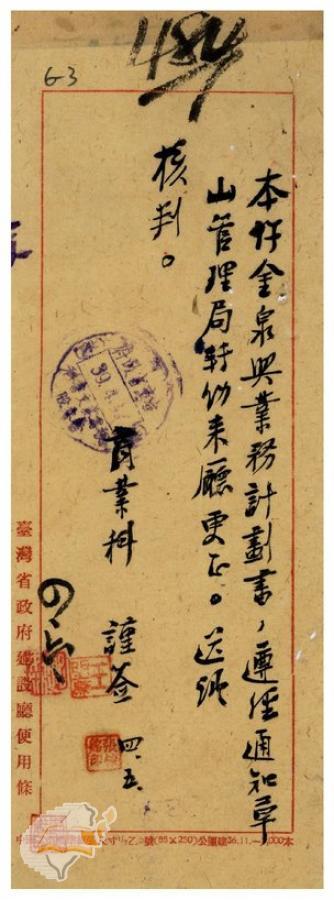 484
63
本件金泉興業務計劃書，遵經通知草
山管理局轉飭來廳更正。送請
核判。
商業科 謹簽 四、五
臺灣省政府建設廳便用條
(85×250)